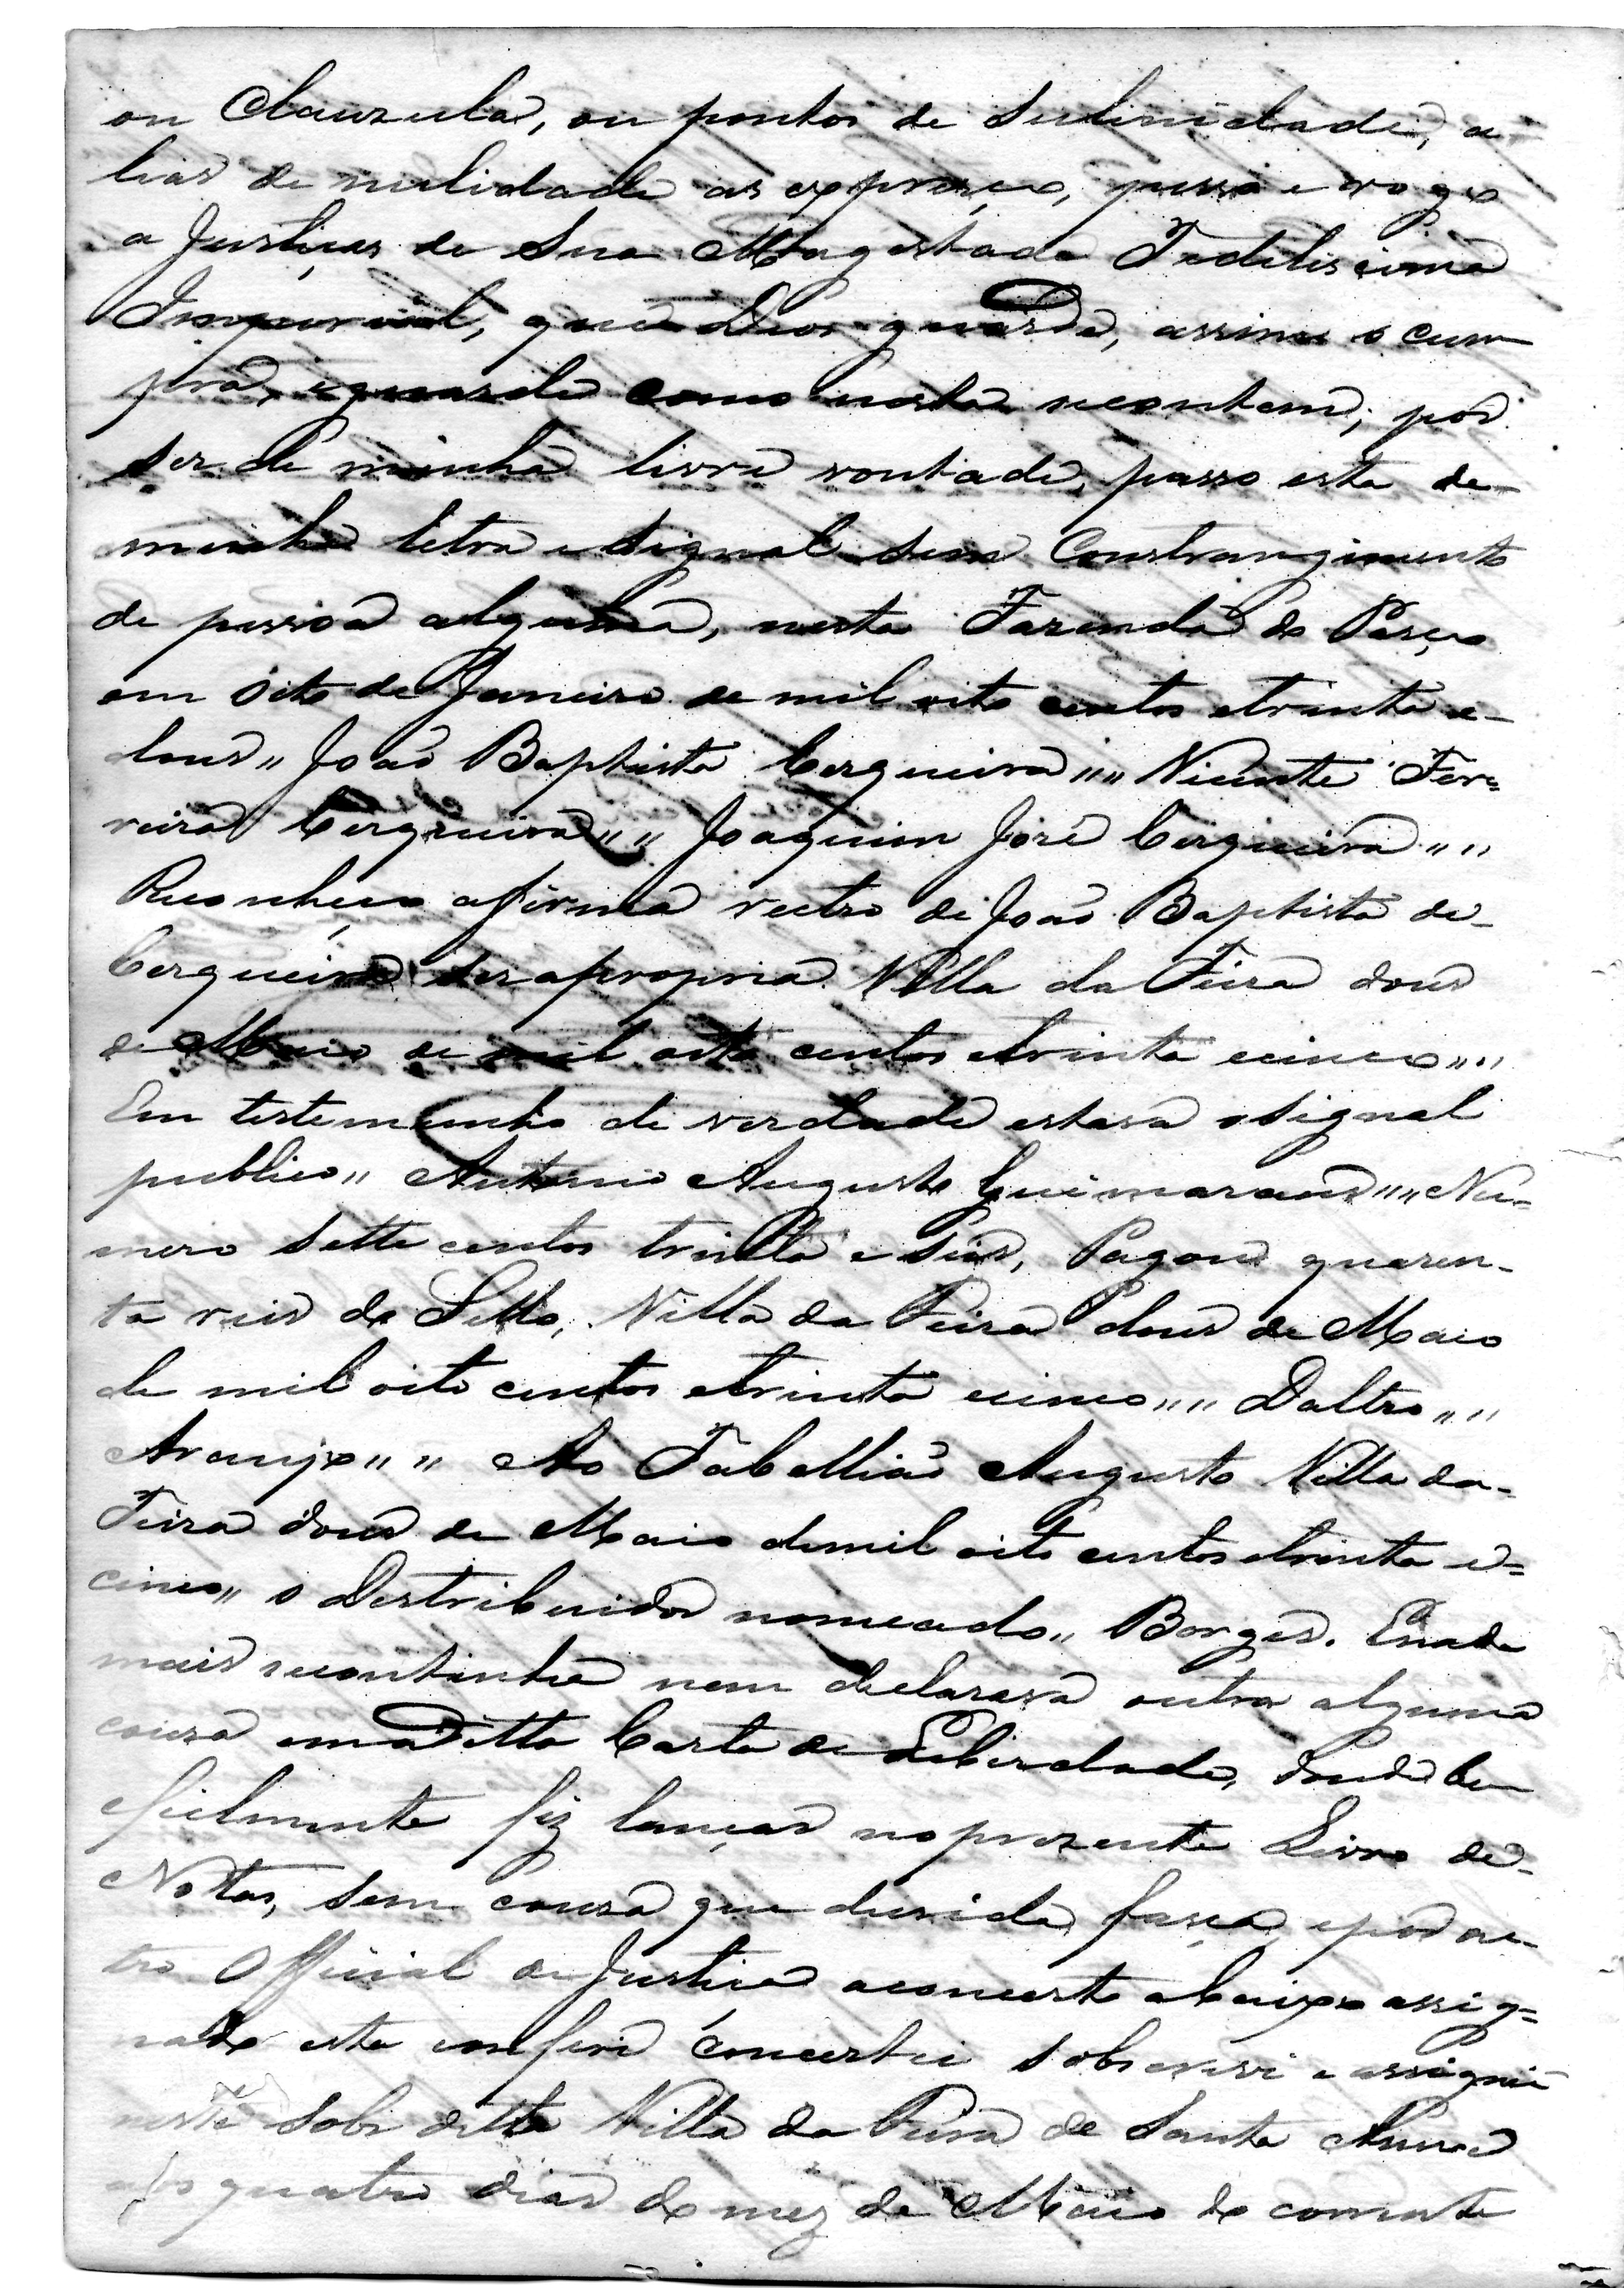 ou Clauzula, ou pontos de Sulinidade, a
lias de nulidade as expreço, pesso e rogo
a Justiças de Sua Magestade Fedelicima
Imperial, que Deos guarde, assim o cum
pra, eguarde como nesta secontem; por
ser de minha livre vontade, passo esta de
minha letra e Signal sem Constrangimento
de pessoa alguma, nesta Fazenda do Paço
em oito de Janeiro de mil oito centos etrinta e
dous,, João Baptista Cerqueira,,,, Vicente Fer=
reira Cerqueira,,,, Joaquim José Cerqueira,,,,
Reconheço afirma rectro de João Baptista de
Cerqueira ser apropria Villa da Feira dous
de Maio de mil oito centos etrinta ecinco,,,,
Em testemunho de verdade estava o Signal
publico,, Antonio Augusto Guimaraens,,,, Nu-
mero Sette centos trinta e Seis, Pagou quaren-
ta reis de Sello, Villa da Feira dous de Maio
de mil oito centos etrinta ecinco,,,, Daltro,,,,
Araujo,,,, Ao Tabellião Augusto Villa da-
Feira dous de Maio demil oito centos etrinta e=
cinco,, o Destribuidor nomeado,, Borges. Enada
mais secontinha nem declarava outra alguma
couza ema ditta Carta de Leberdade, donde bem
efielmente fiz lançar no prezente Livro de-
Nottas, sem couza que duvida faça, epor ou-
tro Official de Justiça aconcerto abaixo assig=
nado esta conferi concertei sobscrevi e assignei
nesta Sobi ditta Villa da Feira de Santa Anna
aos quatro dias do mez de Maio do corrente